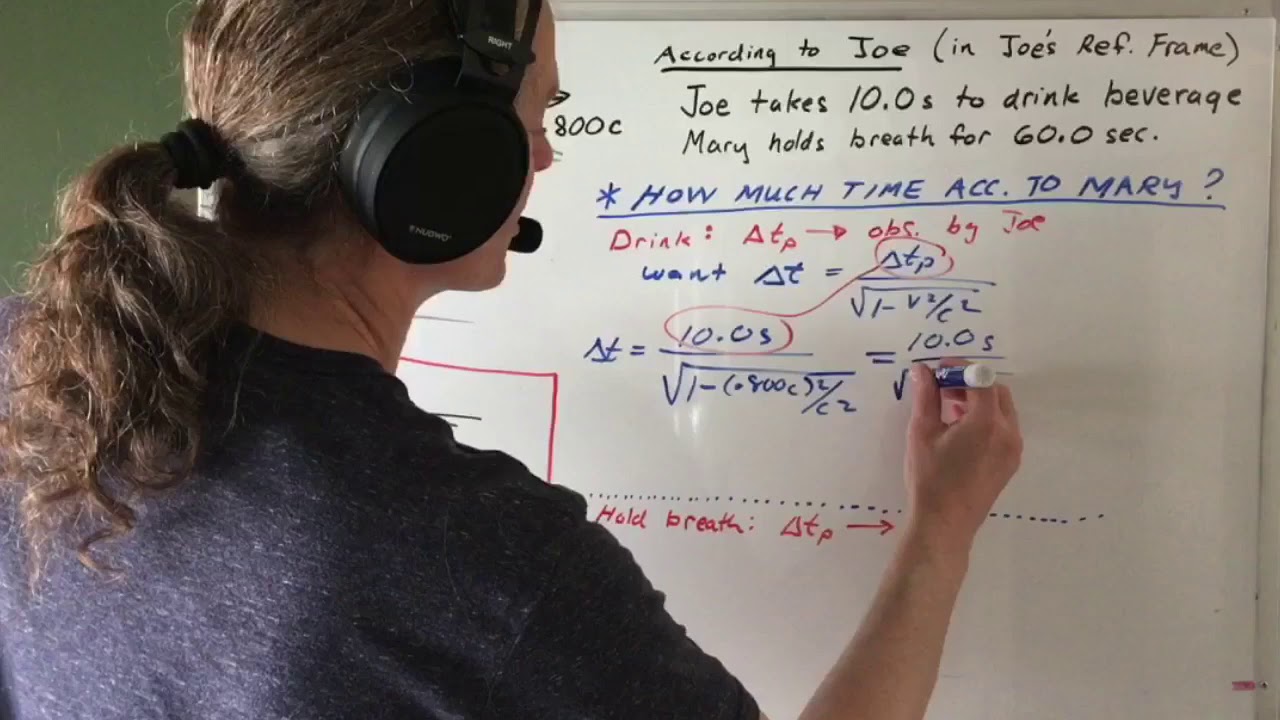 According to Joe (in Joe's Ref. Frame)
.800c
Joe takes 10.0s to drink beverage
Mary holds breath for 60.0 sec.
* HOW MUCH TIME ACC. TO MARY?
Drink: Δtₚ → obs. by Joe
want Δt = Δtₚ / √1 - v²/c²
Δt = 10.0s / √1-(.800c)²/c² = 10.0s / √
Hold breath: Δtₚ →
RIGHT